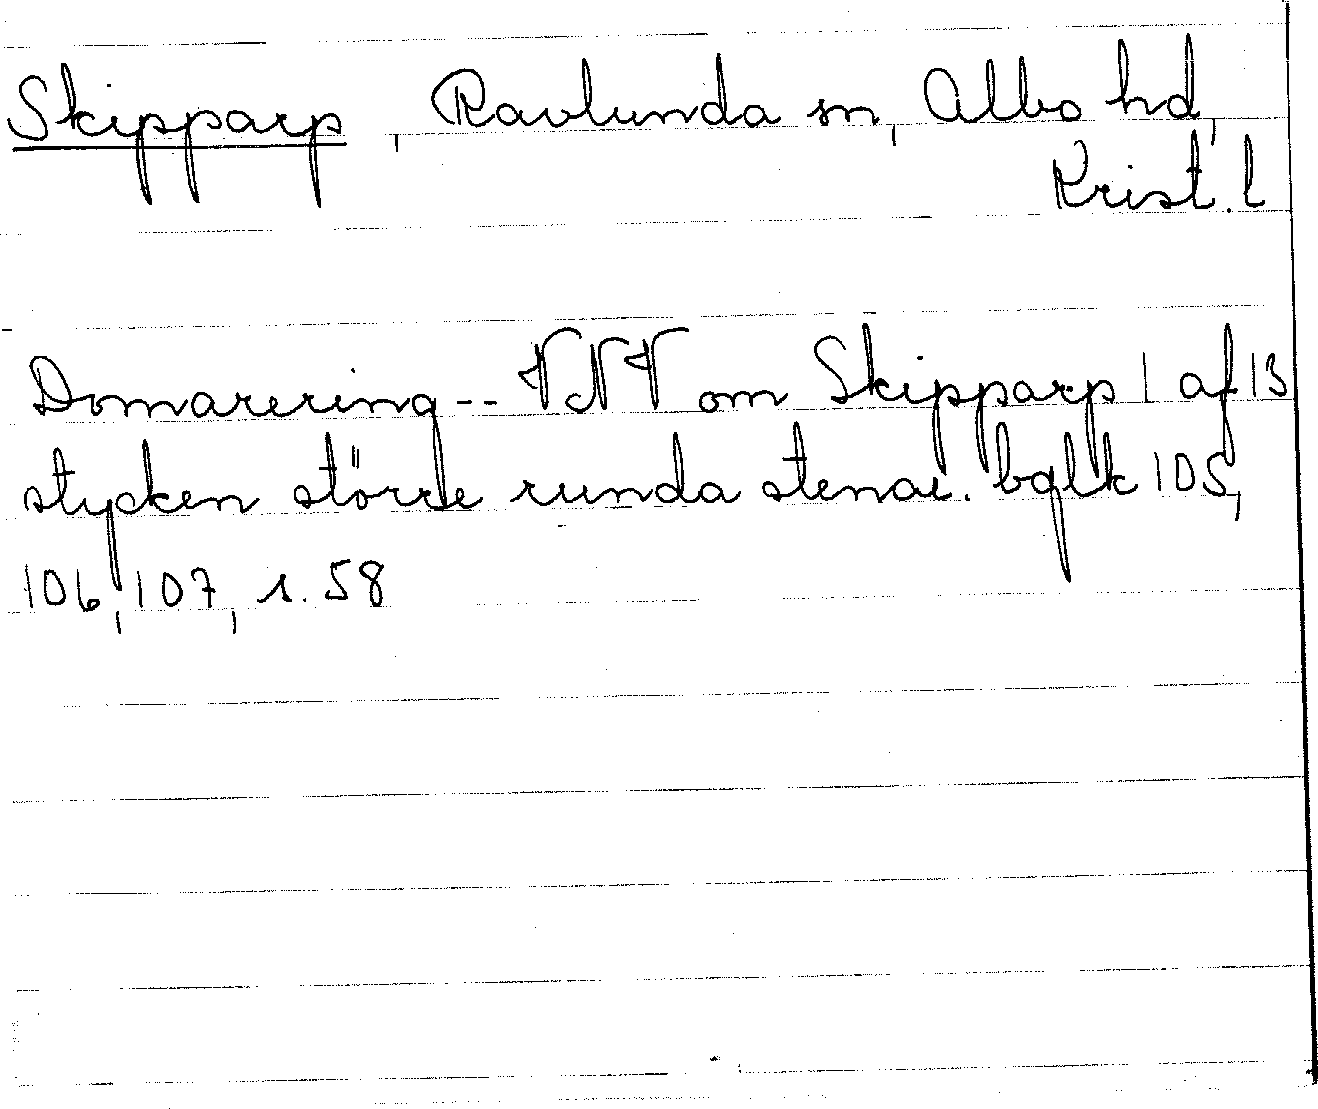 Skipparp, Ravlunda sn, Albo hd,
Krist. l
Domarering -- VNV om Skipparp 1 af 13
stycken större runda stenar. bglk 105,
106, 107, s. 58